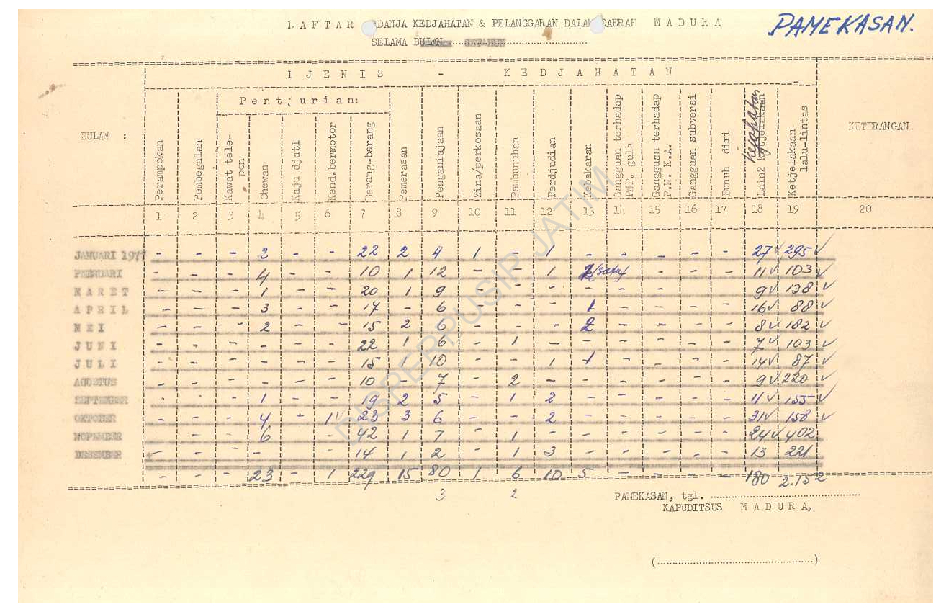 DAFTAR ADANJA KEDJAHATAN & PELANGGARAN DALAM DAERAH M A D U R A
PAMEKASAN.
SELAMA BULAN
DJENIS - K E D J A H A T A N
Pentjurian:
BULAN :
Perampokan
Pembegalan
Kawat tele-pon
Hewan
Kaju djati
Kend.bermotor
Barang-barang
Pemerasan
Penganiajaan
Zina/perkosaan
Pembunuhan
Perdjudian
Kebakaran
Gangguan terhadap
Gangguan terhadap
Gangguan subversi
Bunuh diri
Lain2 kejahatan
Ketjelakaan lalu-lintas
KETERANGAN
1 2 3 4 5 6 7 8 9 10 11 12 13 14 15 16 17 18 19 20
JANUARI 197 - - - 2 - - 22 2 4 1 - 1 - - - - - 27 295
PEBRUARI - - - 4 - - 10 1 12 - - 1 - - - - 11 103
MARET - - - 1 - - 20 1 9 - - - - - - - - 9 138
APRIL - - - 3 - - 17 - 6 - - - 1 - - - - 16 88
MEI - - - 2 - - 15 2 6 - - - 2 - - - - 8 182
JUNI - - - - - - 22 1 6 - 1 - - - - - - 7 103
JULI - - - - - - 15 - 10 - - 1 1 - - - - 14 87
AGUSTUS - - - - - - 10 - 7 - 2 - - - - - - 9 220
SEPTEMBER - - - 1 - - 19 2 5 - 1 2 - - - - - 11 155
OKTOBER - - - 4 - 1 23 3 6 - - 2 - - - - - 31 158
NOPEMBER - - - 6 - - 42 1 7 - 1 - - - - - - 24 402
DESEMBER - - - - - - 14 1 2 - 1 3 - - - - - 13 221
- - - 23 - 1 229 15 80 1 6 10 5 - - - - 180 2.152
3 2
PAMEKASAN, tgl.
KAPUDITSUS M A D U R A,
(....................)
DISPERPUSIP JATIM